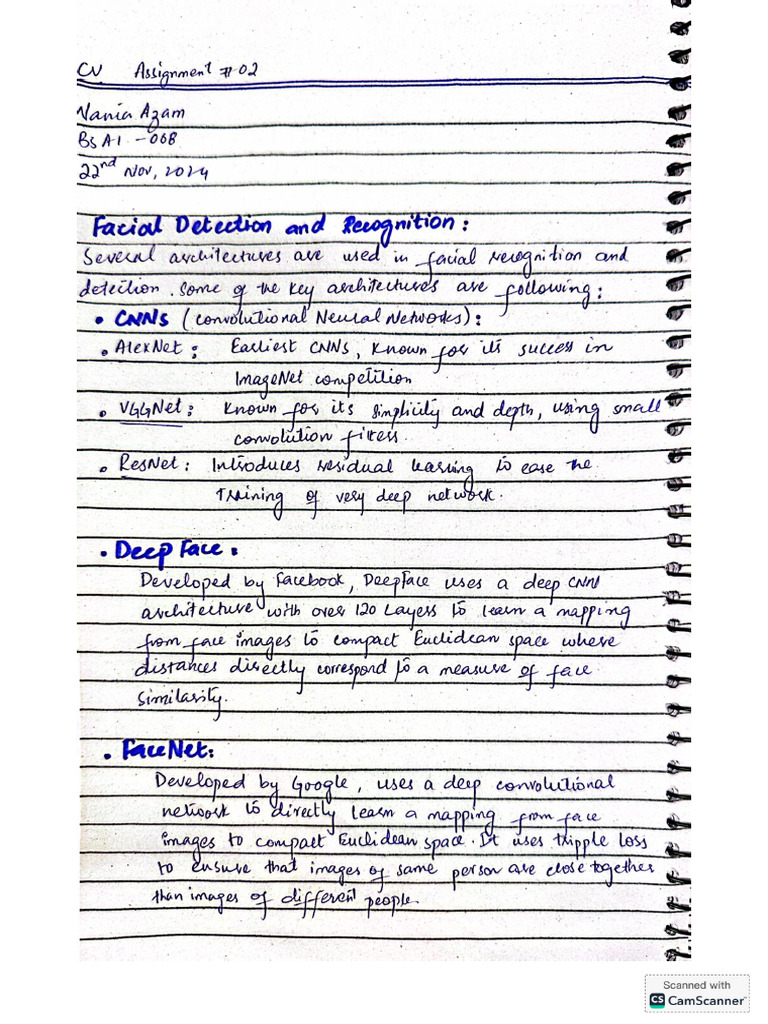 CV Assignment # 02
Vania Azam
BSAI - 008
22nd Nov, 2024
Facial Detection and Recognition:
Several architectures are used in facial recognition and
detection. Some of the key architectures are following:
• CNNs (Convolutional Neural Networks):
• AlexNet: Earliest CNNs, Known for its success in
ImageNet competition
• VGGNet: Known for its simplicity and depth, using small
convolution filters.
• ResNet: Introduces residual learning to ease the
Training of very deep network.
• Deep Face:
Developed by Facebook, DeepFace uses a deep CNN
architecture with over 120 Layers to learn a mapping
from face images to compact Euclidean space where
distances directly correspond to a measure of face
similarity.
• FaceNet:
Developed by Google, uses a deep convolutional
network to directly learn a mapping from face
images to compact Euclidean space. It uses tripple loss
to ensure that images of same person are close together
than images of different people.
Scanned with
CS CamScanner